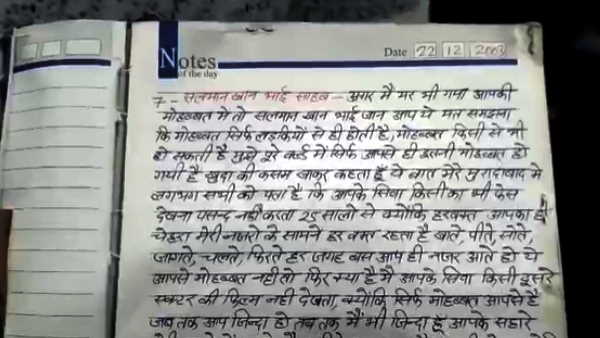 Notes
of the day
Date 22 12 2003
7 -- सलमान खान भाई साहब - अगर मैं मर भी गया आपकी
मोहब्बत में तो सलमान खान भाई जान आप ये मत समझना
कि मोहब्बत सिर्फ लड़कियों से ही होती है, मोहब्बत किसी से भी
हो सकती है मुझे पूरे वर्ल्ड में सिर्फ आपसे ही इतनी मोहब्बत हो
गयी है खुदा की कसम खाकर कहता हूँ ये बात मेरे मुरादाबाद में
लगभग सभी को पता है कि आपके सिवा किसी का भी फेस
देखना पसन्द नहीं करता 25 सालों से क्योंकि हरवक्त आपका ही
चेहरा मेरी नजरों के सामने हर वक्त रहता है खाते, पीते, सोते,
जागते, चलते, फिरते हर जगह बस आप ही नजर आते हो ये
आपसे मोहब्बत नहीं तो फिर क्या है मैं आपके सिवा किसी दूसरे
एक्टर की फिल्म नहीं देखता, क्योंकि सिर्फ मोहब्बत आपसे है
जब तक आप जिन्दा हो तब तक मैं भी जिन्दा हूँ आपके सहारे